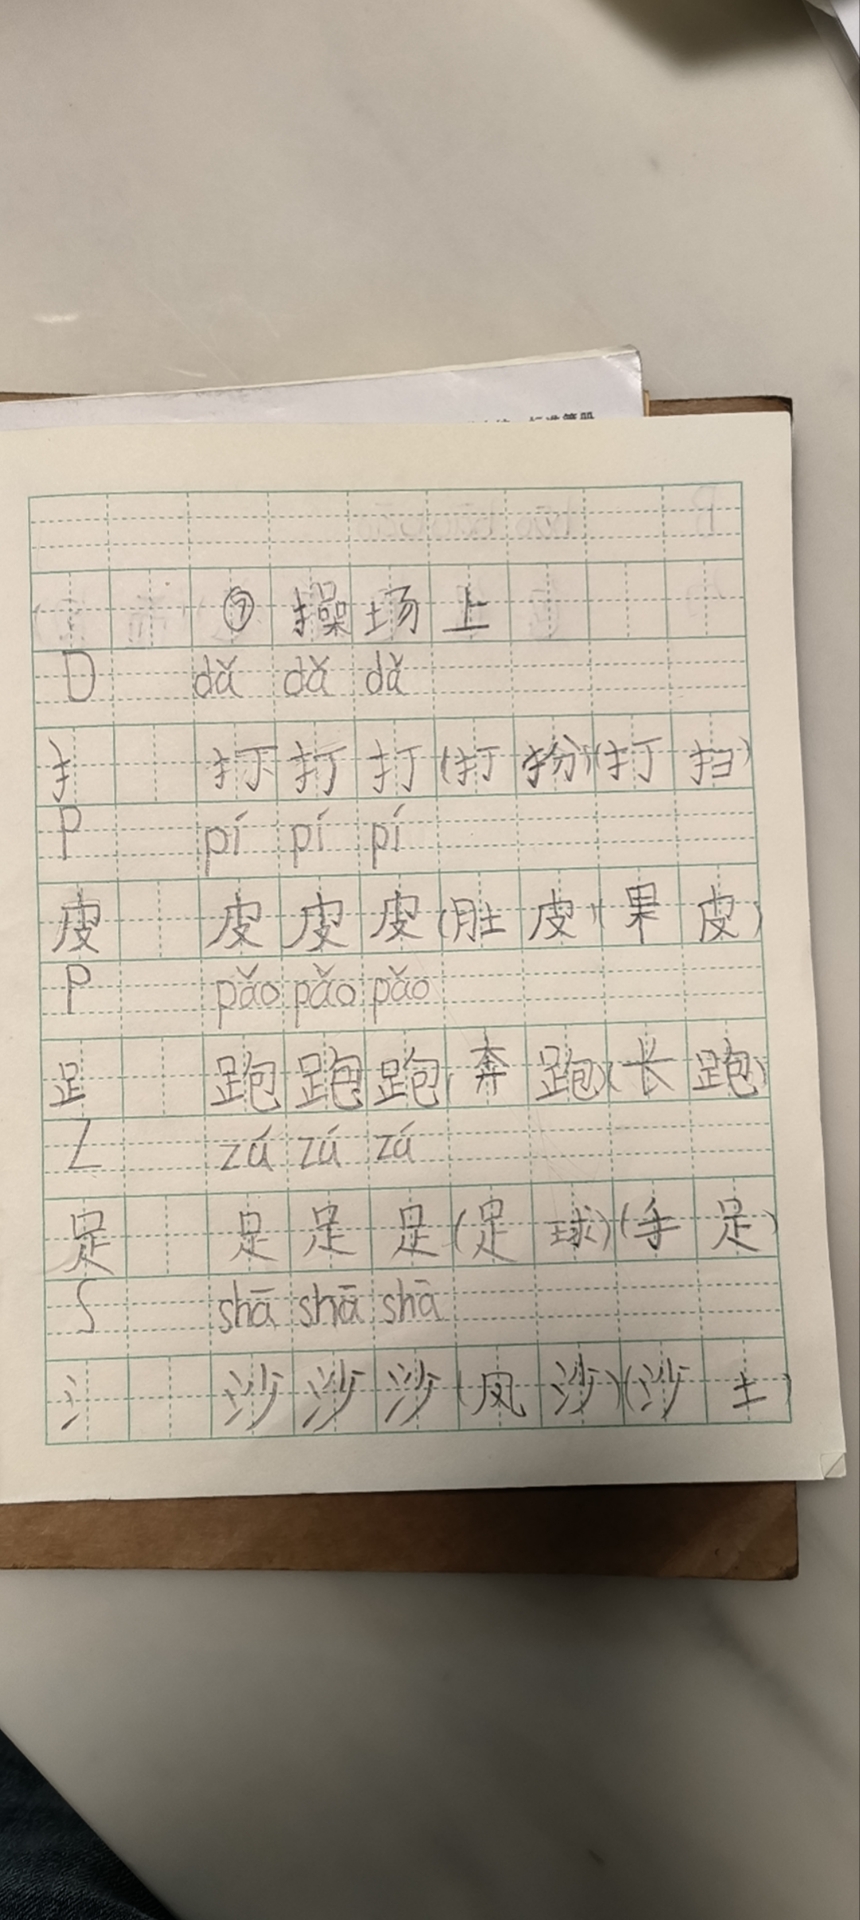 ⑦ 操场上
D dǎ dǎ dǎ
扌 打 打 打 (打扮)(打扫)
P pí pí pí
皮 皮 皮 皮 (肚皮)(果皮)
P pǎo pǎo pǎo
𧾷 跑 跑 跑 (奔跑)(长跑)
Z zú zú zú
足 足 足 足 (足球)(手足)
S shā shā shā
氵 沙 沙 沙 (风沙)(沙土)